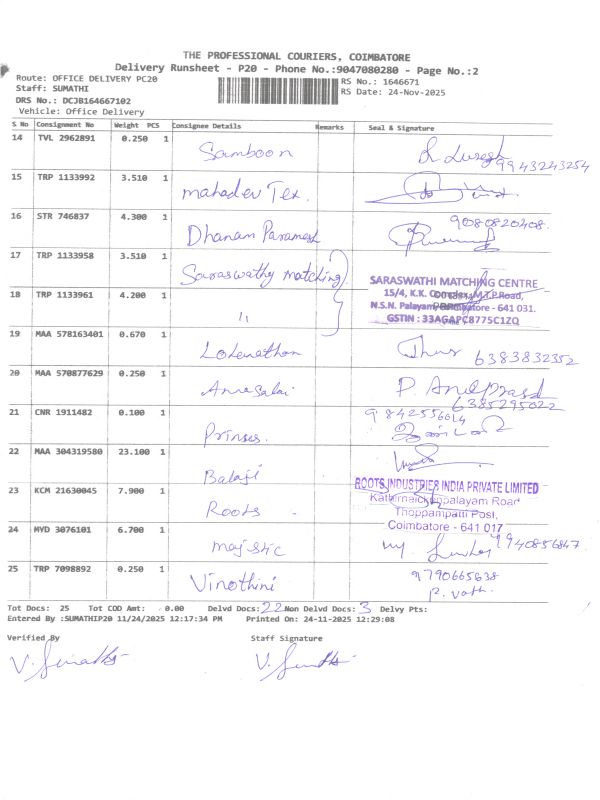 THE PROFESSIONAL COURIERS, COIMBATORE
Delivery Runsheet - P20 - Phone No.:9047080280 - Page No.:2
Route: OFFICE DELIVERY PC20
RS No.: 1646671
Staff: SUMATHI
RS Date: 24-Nov-2025
DRS No.: DCJB164667102
Vehicle: Office Delivery
S No Consignment No Weight PCS Consignee Details Remarks Seal & Signature
14 TVL 2962891 0.250 1 Samboon 9943243254
15 TRP 1133992 3.510 1 mahadev Tex.
16 STR 746837 4.300 1 Dhanam Paramesh 9080820408.
17 TRP 1133958 3.510 1 Saraswathy matching
SARASWATHI MATCHING CENTRE
15/4, K.K. Complex, M.T.P.Road,
N.S.N. Palayam, Coimbatore - 641 031.
GSTIN : 33AGAPC8775C1ZQ
18 TRP 1133961 4.200 1 11
19 MAA 578163401 0.670 1 6383832352
20 MAA 570877629 0.250 1 Annasalai P. Anilprasd
6385295022
21 CNR 1911482 0.100 1 Prinses. 9842556014
22 MAA 304319580 23.100 1 Balaji
23 KCM 21630045 7.900 1 Roots
ROOTS INDUSTRIES INDIA PRIVATE LIMITED
Thoppampatti Post,
Coimbatore - 641 017
24 MVD 3076101 6.700 1 majstic 9940856847
25 TRP 7098892 0.250 1 Vinothini 9790665638
Tot Docs: 25 Tot COD Amt: 0.00 Delvd Docs: 22 Non Delvd Docs: 3 Delvy Pts:
Entered By :SUMATHIP20 11/24/2025 12:17:34 PM Printed On: 24-11-2025 12:29:08
Verified By Staff Signature
V. Sumathi V. Sumathi